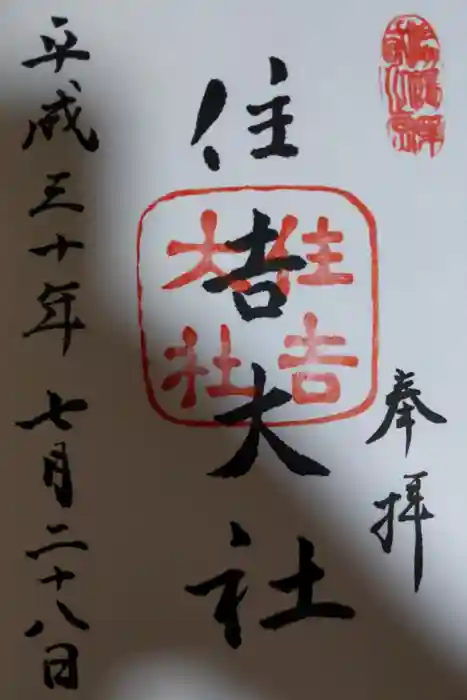 奉拝
住吉大社
住吉
大社
平成三十年七月二十八日